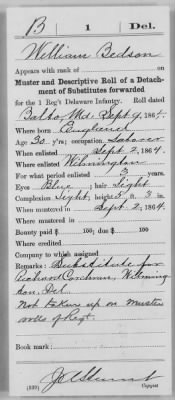 B | 1 | Del.
William Bedson
Appears with rank of on
Muster and Descriptive Roll of a Detachment
of Substitutes forwarded
for the 1 Reg't Delaware Infantry. Roll dated
Balto Md. Sept 9, 1864.
Where born England
Age 30 y'rs; occupation Laborer
When enlisted Sept 2, 1864.
Where enlisted Wilmington
For what period enlisted 3 years.
Eyes Blue; hair Light
Complexion Light; height 5 ft. 3 in.
When mustered in Sept 2, 1864.
Where mustered in
Bounty paid $ 100; due $ 100
Where credited
Company to which assigned
Remarks: Substitute for
Richard Cochran, Wilming
ton, Del
Not taken up on muster
rolls of Regt.
Book mark:
(339) Copyist.